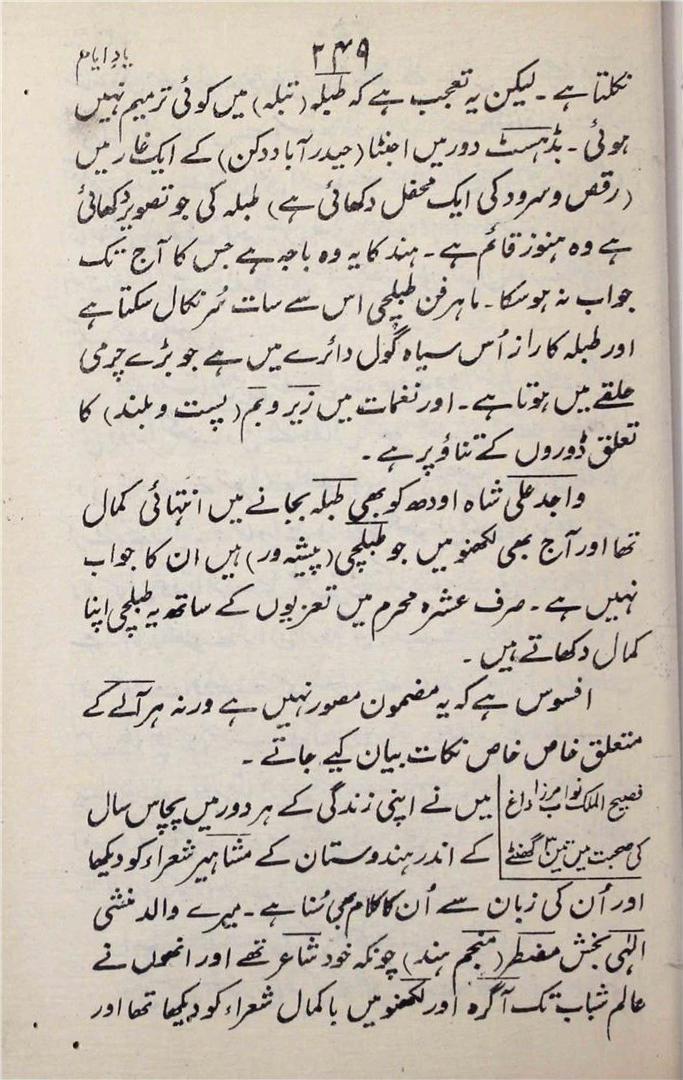 ۲۴۹
یادِ ایام
نکلتا ہے۔ لیکن یہ تعجب ہے کہ طبلہ (تبلہ) میں کوئی ترمیم نہیں
ہوئی۔ بڈہسٹ دور میں اجنٹا (حیدرآباد دکن) کے ایک غار میں
(رقص و سرود کی ایک محفل دکھائی ہے) طبلہ کی جو تصویر دکھائی
ہے وہ ہنوز قائم ہے۔ ہند کا یہ وہ باجہ ہے جس کا آج تک
جواب نہ ہو سکا۔ ماہر فن طبلچی اس سے سات سُر نکال سکتا ہے
اور طبلہ کا راز اُس سیاہ گول دائرے میں ہے جو بڑے چرمی
حلقے میں ہوتا ہے۔ اور نغمات میں زیر و بم (پست و بلند) کا
تعلق ڈوروں کے تناؤ پر ہے۔
واجد علی شاہ اودھ کو بھی طبلہ بجانے میں انتہائی کمال
تھا اور آج بھی لکھنؤ میں جو طبلچی (پیشہ ور) ہیں ان کا جواب
نہیں ہے۔ صرف عشرہ محرم میں تعزیوں کے ساتھ یہ طبلچی اپنا
کمال دکھاتے ہیں۔
افسوس ہے کہ یہ مضمون مصور نہیں ہے ورنہ ہر آلے کے
متعلق خاص خاص نکات بیان کیے جاتے۔
فصیح الملک نواب مرزا داغ
کی صحبت میں تین گھنٹے
میں نے اپنی زندگی کے ہر دور میں پچاس سال
کے اندر ہندوستان کے مشاہیر شعراء کو دیکھا
اور اُن کی زبان سے اُن کا کلام بھی سُنا ہے۔ میرے والد منشی
الٰہی بخش مضطر (منجم ہند) چونکہ خود شاعر تھے اور انھوں نے
عالم شباب تک آگرہ اور لکھنؤ میں باکمال شعراء کو دیکھا تھا اور